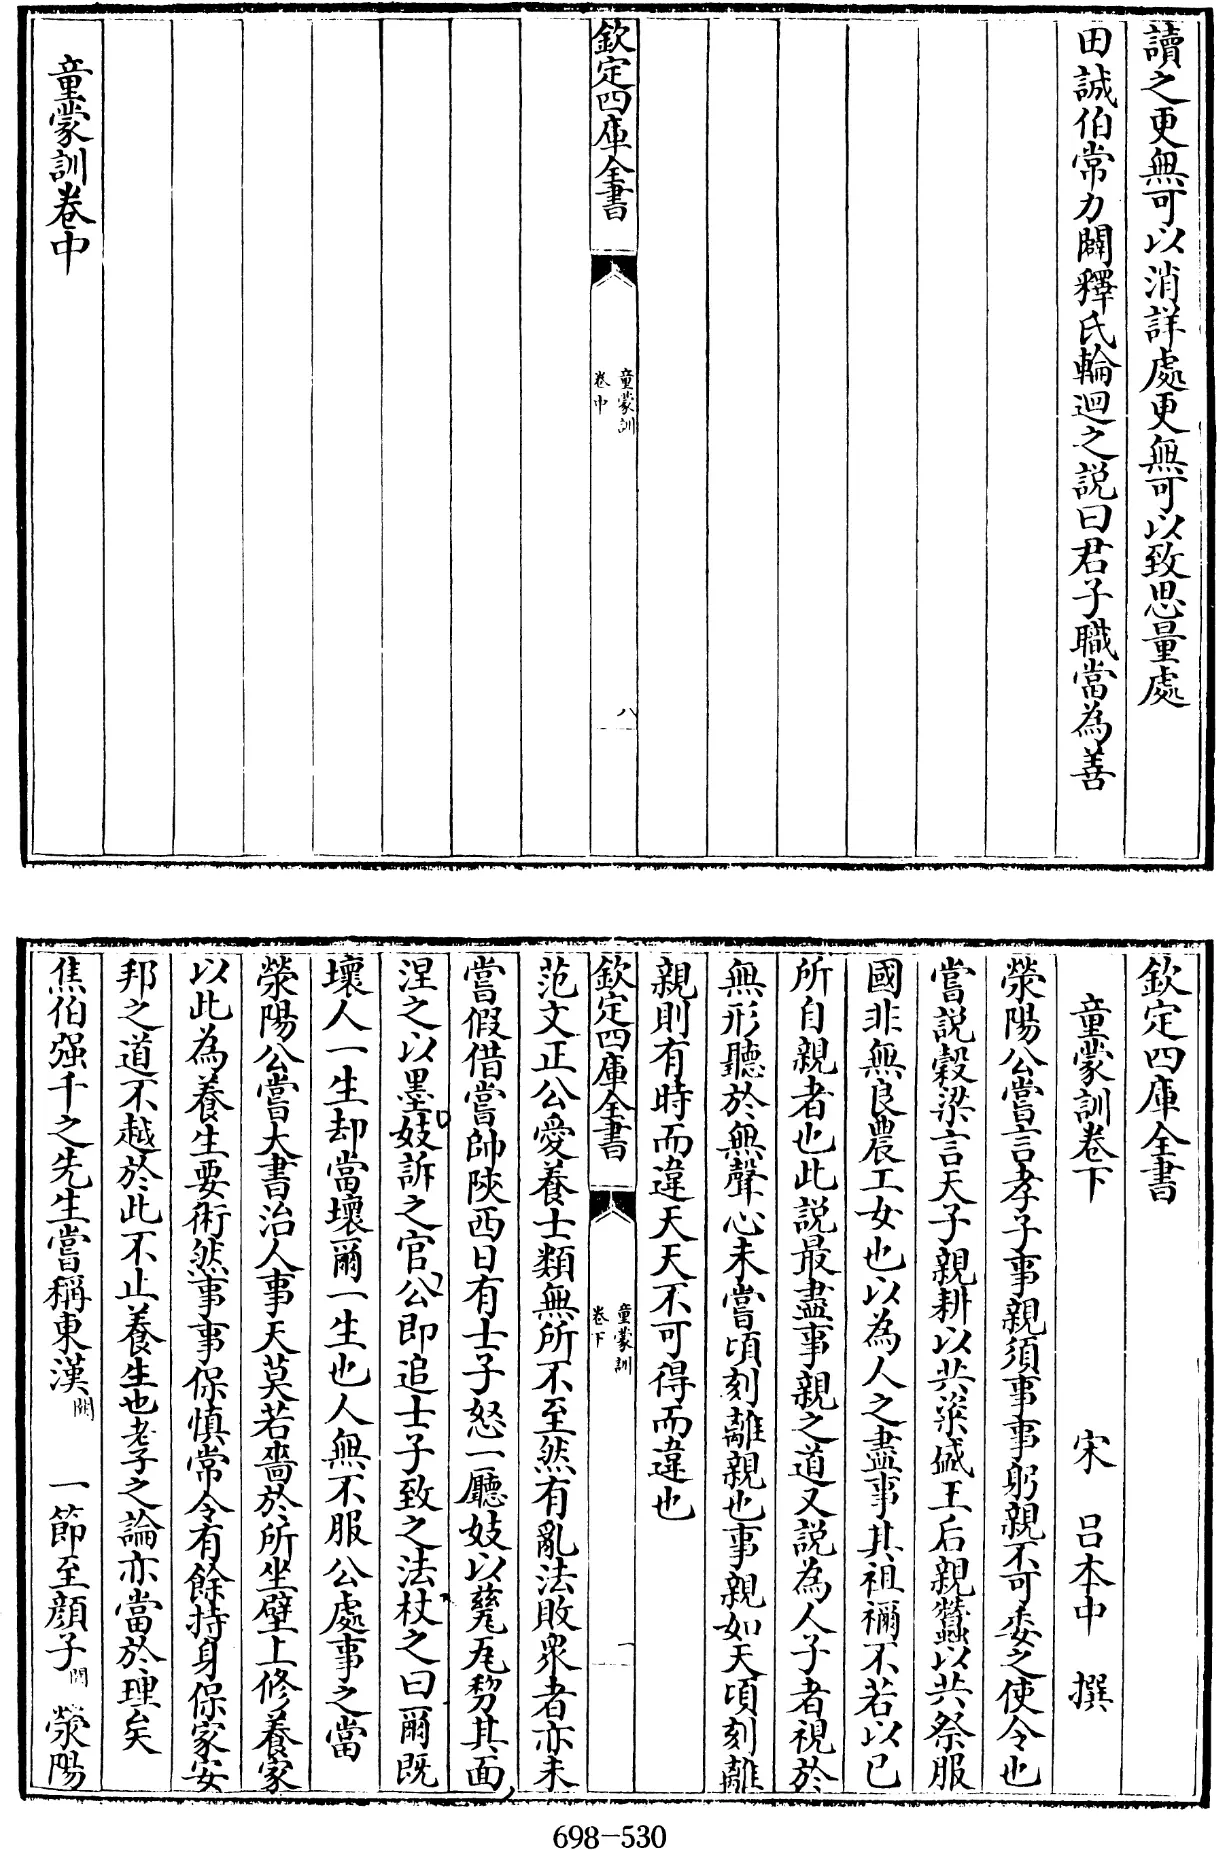 讀之更無可以消詳處更無可以致思量處
田誠伯常力闢釋氏輪迴之説曰君子職當為善
欽定四庫全書
童蒙訓
卷中
八
童蒙訓卷中
欽定四庫全書
童蒙訓卷下
宋 呂本中 撰
滎陽公嘗言孝子事親須事事躬親不可委之使令也
嘗説穀梁言天子親耕以共粢盛王后親蠶以共祭服
國非無良農工女也以為人之盡事其祖禰不若以已
所自親者也此説最盡事親之道又説為人子者視於
無形聽於無聲心未嘗頃刻離親也事親如天頃刻離
親則有時而違天天不可得而違也
欽定四庫全書
童蒙訓
卷下
一
范文正公愛養士類無所不至然有亂法敗衆者亦未
嘗假借嘗帥陝西日有士子怒一廳妓以甆瓦剺其面
涅之以墨妓訴之官公即追士子致之法杖之曰爾既
壞人一生却當壞爾一生也人無不服公處事之當
滎陽公嘗大書治人事天莫若嗇於所坐壁上修養家
以此為養生要術然事事保慎常令有餘持身保家安
邦之道不越於此不止養生也老子之論亦當於理矣
焦伯强千之先生嘗稱東漢闕 一節至顔子闕 滎陽
698-530